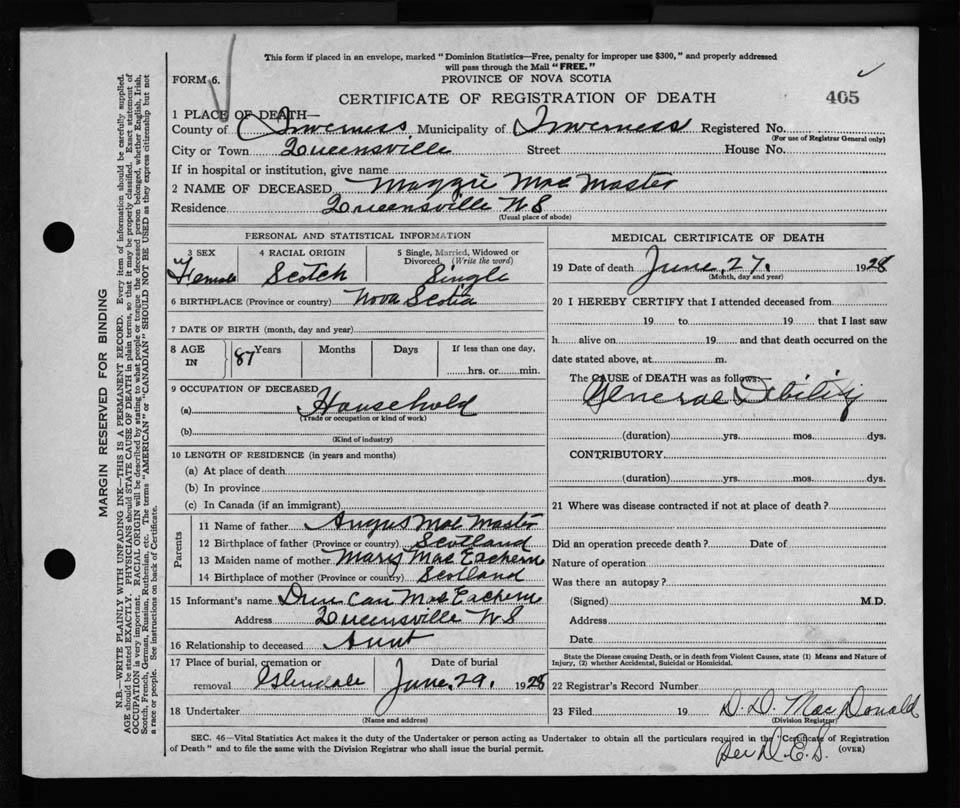 This form if placed in an envelope, marked "Dominion Statistics—Free, penalty for improper use $300," and properly addressed
will pass through the Mail "FREE."
FORM 6.
PROVINCE OF NOVA SCOTIA
CERTIFICATE OF REGISTRATION OF DEATH
405
1 PLACE OF DEATH—
County of Inverness Municipality of Inverness Registered No.
(For use of Registrar General only)
City or Town Queensville Street House No.
If in hospital or institution, give name
2 NAME OF DECEASED Maggie MacMaster
Residence Queensville NS
(Usual place of abode)
PERSONAL AND STATISTICAL INFORMATION
3 SEX
Female
4 RACIAL ORIGIN
Scotch
5 Single, Married, Widowed or
Divorced, (Write the word)
Single
6 BIRTHPLACE (Province or country) Nova Scotia
7 DATE OF BIRTH (month, day and year)
8 AGE IN
87 Years
Months
Days
If less than one day,
hrs. or min.
9 OCCUPATION OF DECEASED
(a) Household
(Trade or occupation or kind of work)
(b)
(Kind of industry)
10 LENGTH OF RESIDENCE (in years and months)
(a) At place of death
(b) In province
(c) In Canada (if an immigrant)
Parents
11 Name of father Angus MacMaster
12 Birthplace of father (Province or country) Scotland
13 Maiden name of mother Mary MacEachern
14 Birthplace of mother (Province or country) Scotland
15 Informant's name Duncan MacEachern
Address Queensville NS
16 Relationship to deceased Aunt
17 Place of burial, cremation or
removal Glendale
Date of burial
June, 29, 1928
18 Undertaker
(Name and address)
MEDICAL CERTIFICATE OF DEATH
19 Date of death June, 27, 1928
(Month, day and year)
20 I HEREBY CERTIFY that I attended deceased from
19 to 19 that I last saw
h alive on 19 and that death occurred on the
date stated above, at m.
The CAUSE of DEATH was as follows:
General Debility
(duration) yrs. mos. dys.
CONTRIBUTORY
(duration) yrs. mos. dys.
21 Where was disease contracted if not at place of death?
Did an operation precede death? Date of
Nature of operation
Was there an autopsy?
(Signed) M.D.
Address
Date
State the Disease causing Death, or in death from Violent Causes, state (1) Means and Nature of
Injury, (2) whether Accidental, Suicidal or Homicidal.
22 Registrar's Record Number
23 Filed 19 D. D. MacDonald
(Division Registrar)
Per D.E.S.
SEC. 46—Vital Statistics Act makes it the duty of the Undertaker or person acting as Undertaker to obtain all the particulars required in the "Certificate of Registration
of Death" and to file the same with the Division Registrar who shall issue the burial permit.
(OVER)
MARGIN RESERVED FOR BINDING
N.B.—WRITE PLAINLY WITH UNFADING INK—THIS IS A PERMANENT RECORD. Every item of information should be carefully supplied.
AGE should be stated EXACTLY. PHYSICIANS should STATE CAUSE OF DEATH in plain terms, so that it may be properly classified. Exact statement of
OCCUPATION is very important. RACIAL ORIGIN will be described by stating to what people or tongue the deceased person belonged, whether English, Irish,
Scotch, French, German, Russian, Ruthenian, etc. The terms "AMERICAN" or "CANADIAN" SHOULD NOT BE USED as they express citizenship but not
a race or people. See instructions on back of Certificate.